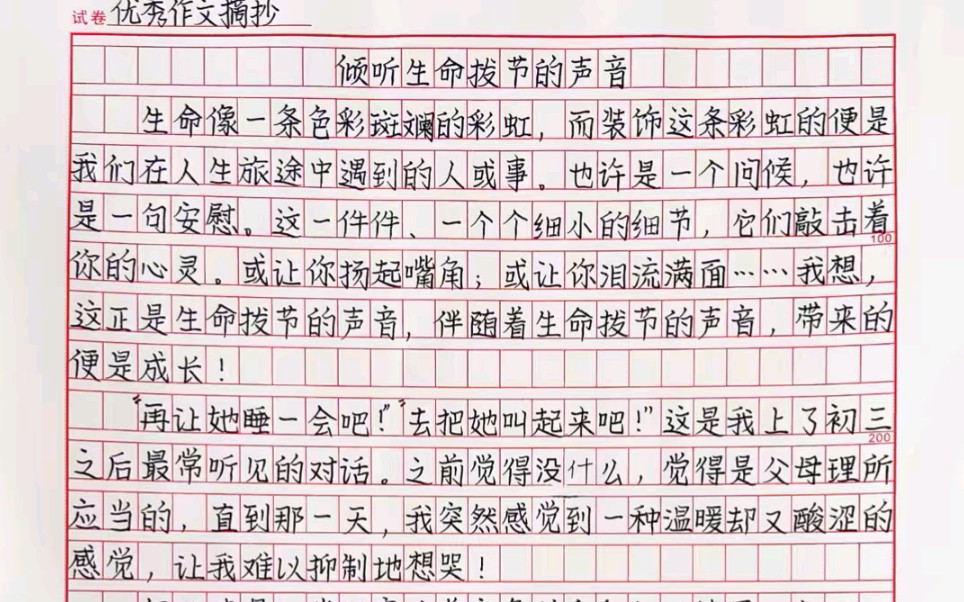 试卷 优秀作文摘抄
倾听生命拔节的声音
生命像一条色彩斑斓的彩虹，而装饰这条彩虹的便是
我们在人生旅途中遇到的人或事。也许是一个问候，也许
是一句安慰。这一件件、一个个细小的细节，它们敲击着
100
你的心灵。或让你扬起嘴角；或让你泪流满面……我想，
这正是生命拔节的声音，伴随着生命拔节的声音，带来的
便是成长！
“再让她睡一会吧！”“去把她叫起来吧！”这是我上了初三
200
之后最常听见的对话。之前觉得没什么，觉得是父母理所
应当的，直到那一天，我突然感觉到一种温暖却又酸涩的
感觉，让我难以抑制地想哭！